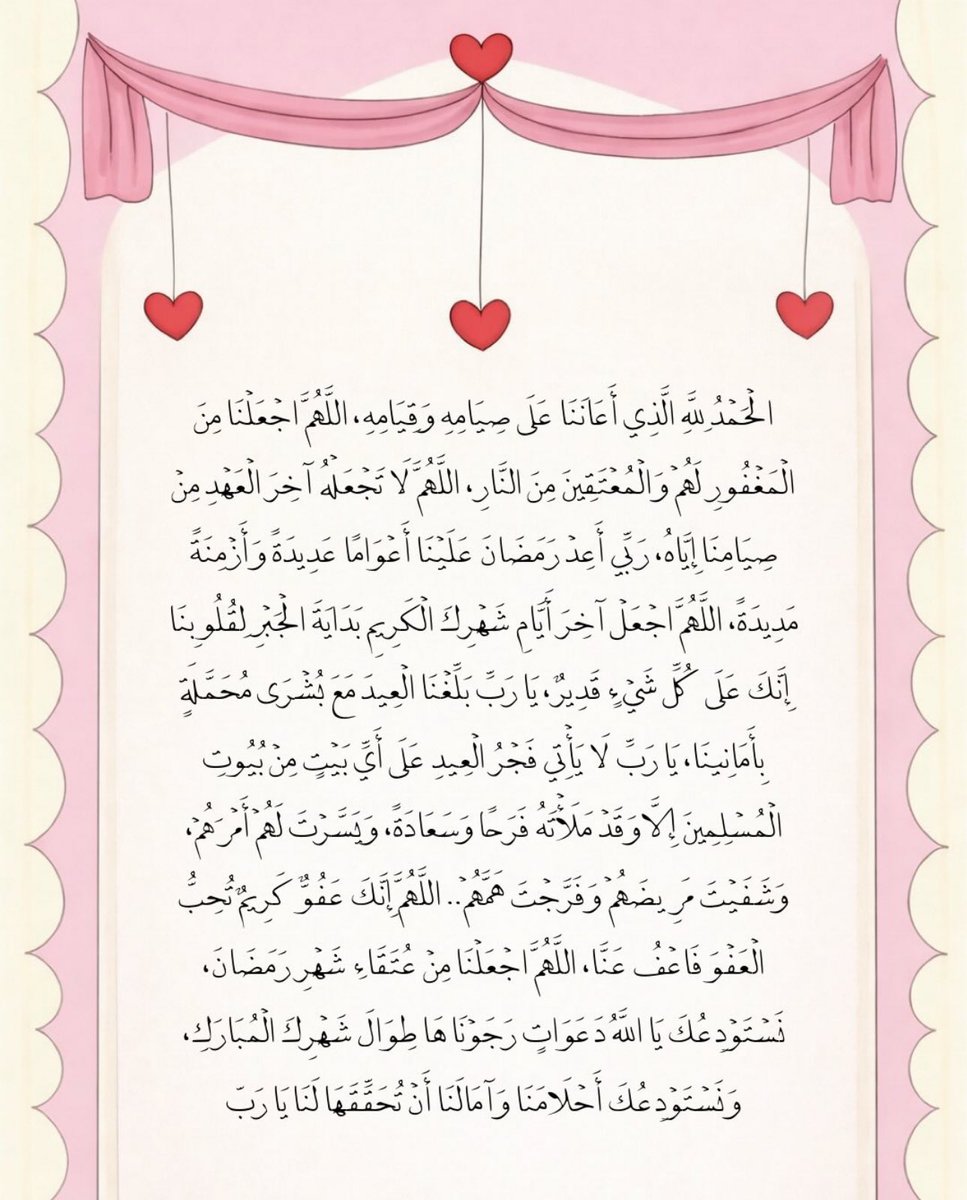 الْحَمْدُ لِلَّهِ الَّذِي أَعَانَنَا عَلَى صِيَامِهِ وَقِيَامِهِ، اللَّهُمَّ اجْعَلْنَا مِنَ
الْمَغْفُورِ لَهُمْ وَالْمُعْتَقِينَ مِنَ النَّارِ، اللَّهُمَّ لَا تَجْعَلْهُ آخِرَ الْعَهْدِ مِنْ
صِيَامِنَا إِيَّاهُ، رَبِّي أَعِدْ رَمَضَانَ عَلَيْنَا أَعْوَامًا عَدِيدَةً وَأَزْمِنَةً
مَدِيدَةً، اللَّهُمَّ اجْعَلْ آخِرَ أَيَّامِ شَهْرِكَ الْكَرِيمِ بَدَايَةَ الْجَبْرِ لِقُلُوبِنَا
إِنَّكَ عَلَى كُلِّ شَيْءٍ قَدِيرٌ، يَا رَبِّ بَلِّغْنَا الْعِيدَ مَعَ بُشْرَى مُحَمَّلَةٍ
بِأَمَانِينَا، يَا رَبِّ لَا يَأْتِي فَجْرُ الْعِيدِ عَلَى أَيِّ بَيْتٍ مِنْ بُيُوتِ
الْمُسْلِمِينَ إِلَّا وَقَدْ مَلَأْتَهُ فَرَحًا وَسَعَادَةً، وَيَسَّرْتَ لَهُمْ أَمْرَهُمْ،
وَشَفَيْتَ مَرِيضَهُمْ وَفَرَّجْتَ هَمَّهُمْ.. اللَّهُمَّ إِنَّكَ عَفُوٌّ كَرِيمٌ تُحِبُّ
الْعَفْوَ فَاعْفُ عَنَّا، اللَّهُمَّ اجْعَلْنَا مِنْ عُتَقَاءِ شَهْرِ رَمَضَانَ،
نَسْتَوْدِعُكَ يَا اللَّهُ دَعَوَاتٍ رَجَوْنَاهَا طِوَالَ شَهْرِكَ الْمُبَارَكِ،
وَنَسْتَوْدِعُكَ أَحْلَامَنَا وَآمَالَنَا أَنْ تُحَقِّقَهَا لَنَا يَا رَبّ